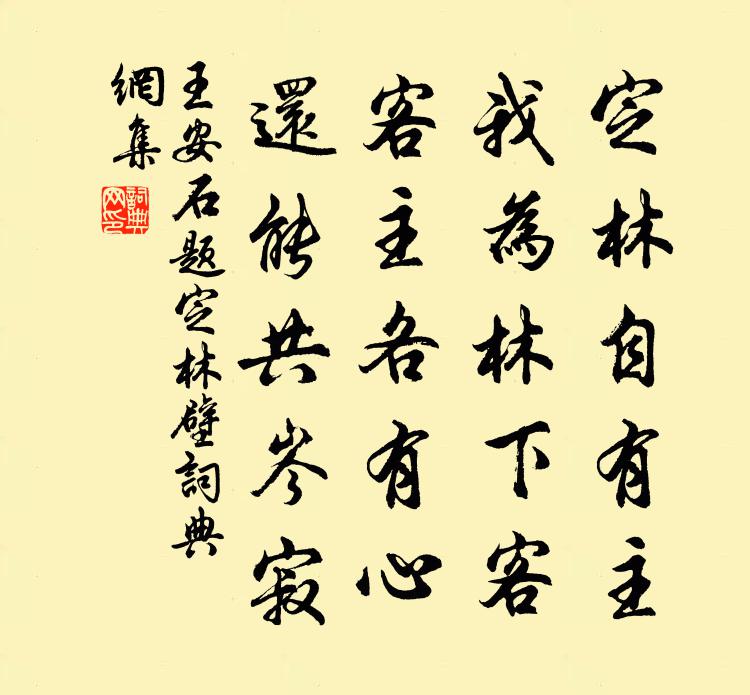 定林自有主
我為林下客
客主各有心
還能共岑寂
王安石題定林壁詞典
網集
詞典
网印